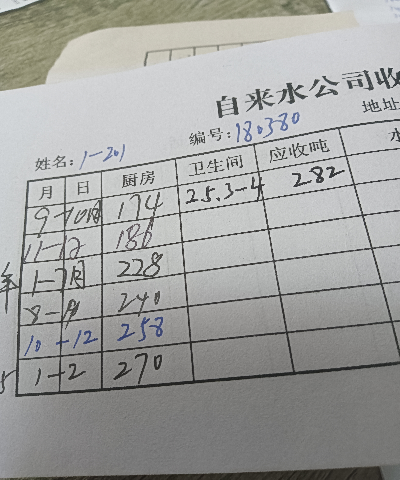 自来水公司收
姓名: 1-201 编号: 180380 地址
月 日 厨房 卫生间 应收吨 水
9-10月 174 25.3-4 282
11-12 186
1-7月 228
8-9 240
10-12 258
1-2 270